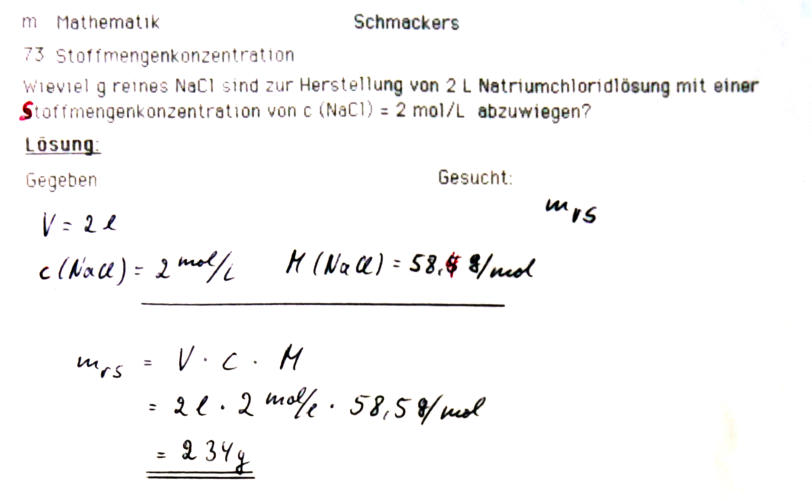 m Mathematik Schmackers
73 Stoffmengenkonzentration
Wieviel g reines NaCl sind zur Herstellung von 2 L Natriumchloridlösung mit einer
Stoffmengenkonzentration von c (NaCl) = 2 mol/L abzuwiegen?
Lösung:
Gegeben Gesucht:
m rs
V = 2 l
c (NaCl) = 2 mol/L M (NaCl) = 58, g/mol
m rs = V · c · M
= 2 l · 2 mol/l · 58,5 g/mol
= 234 g